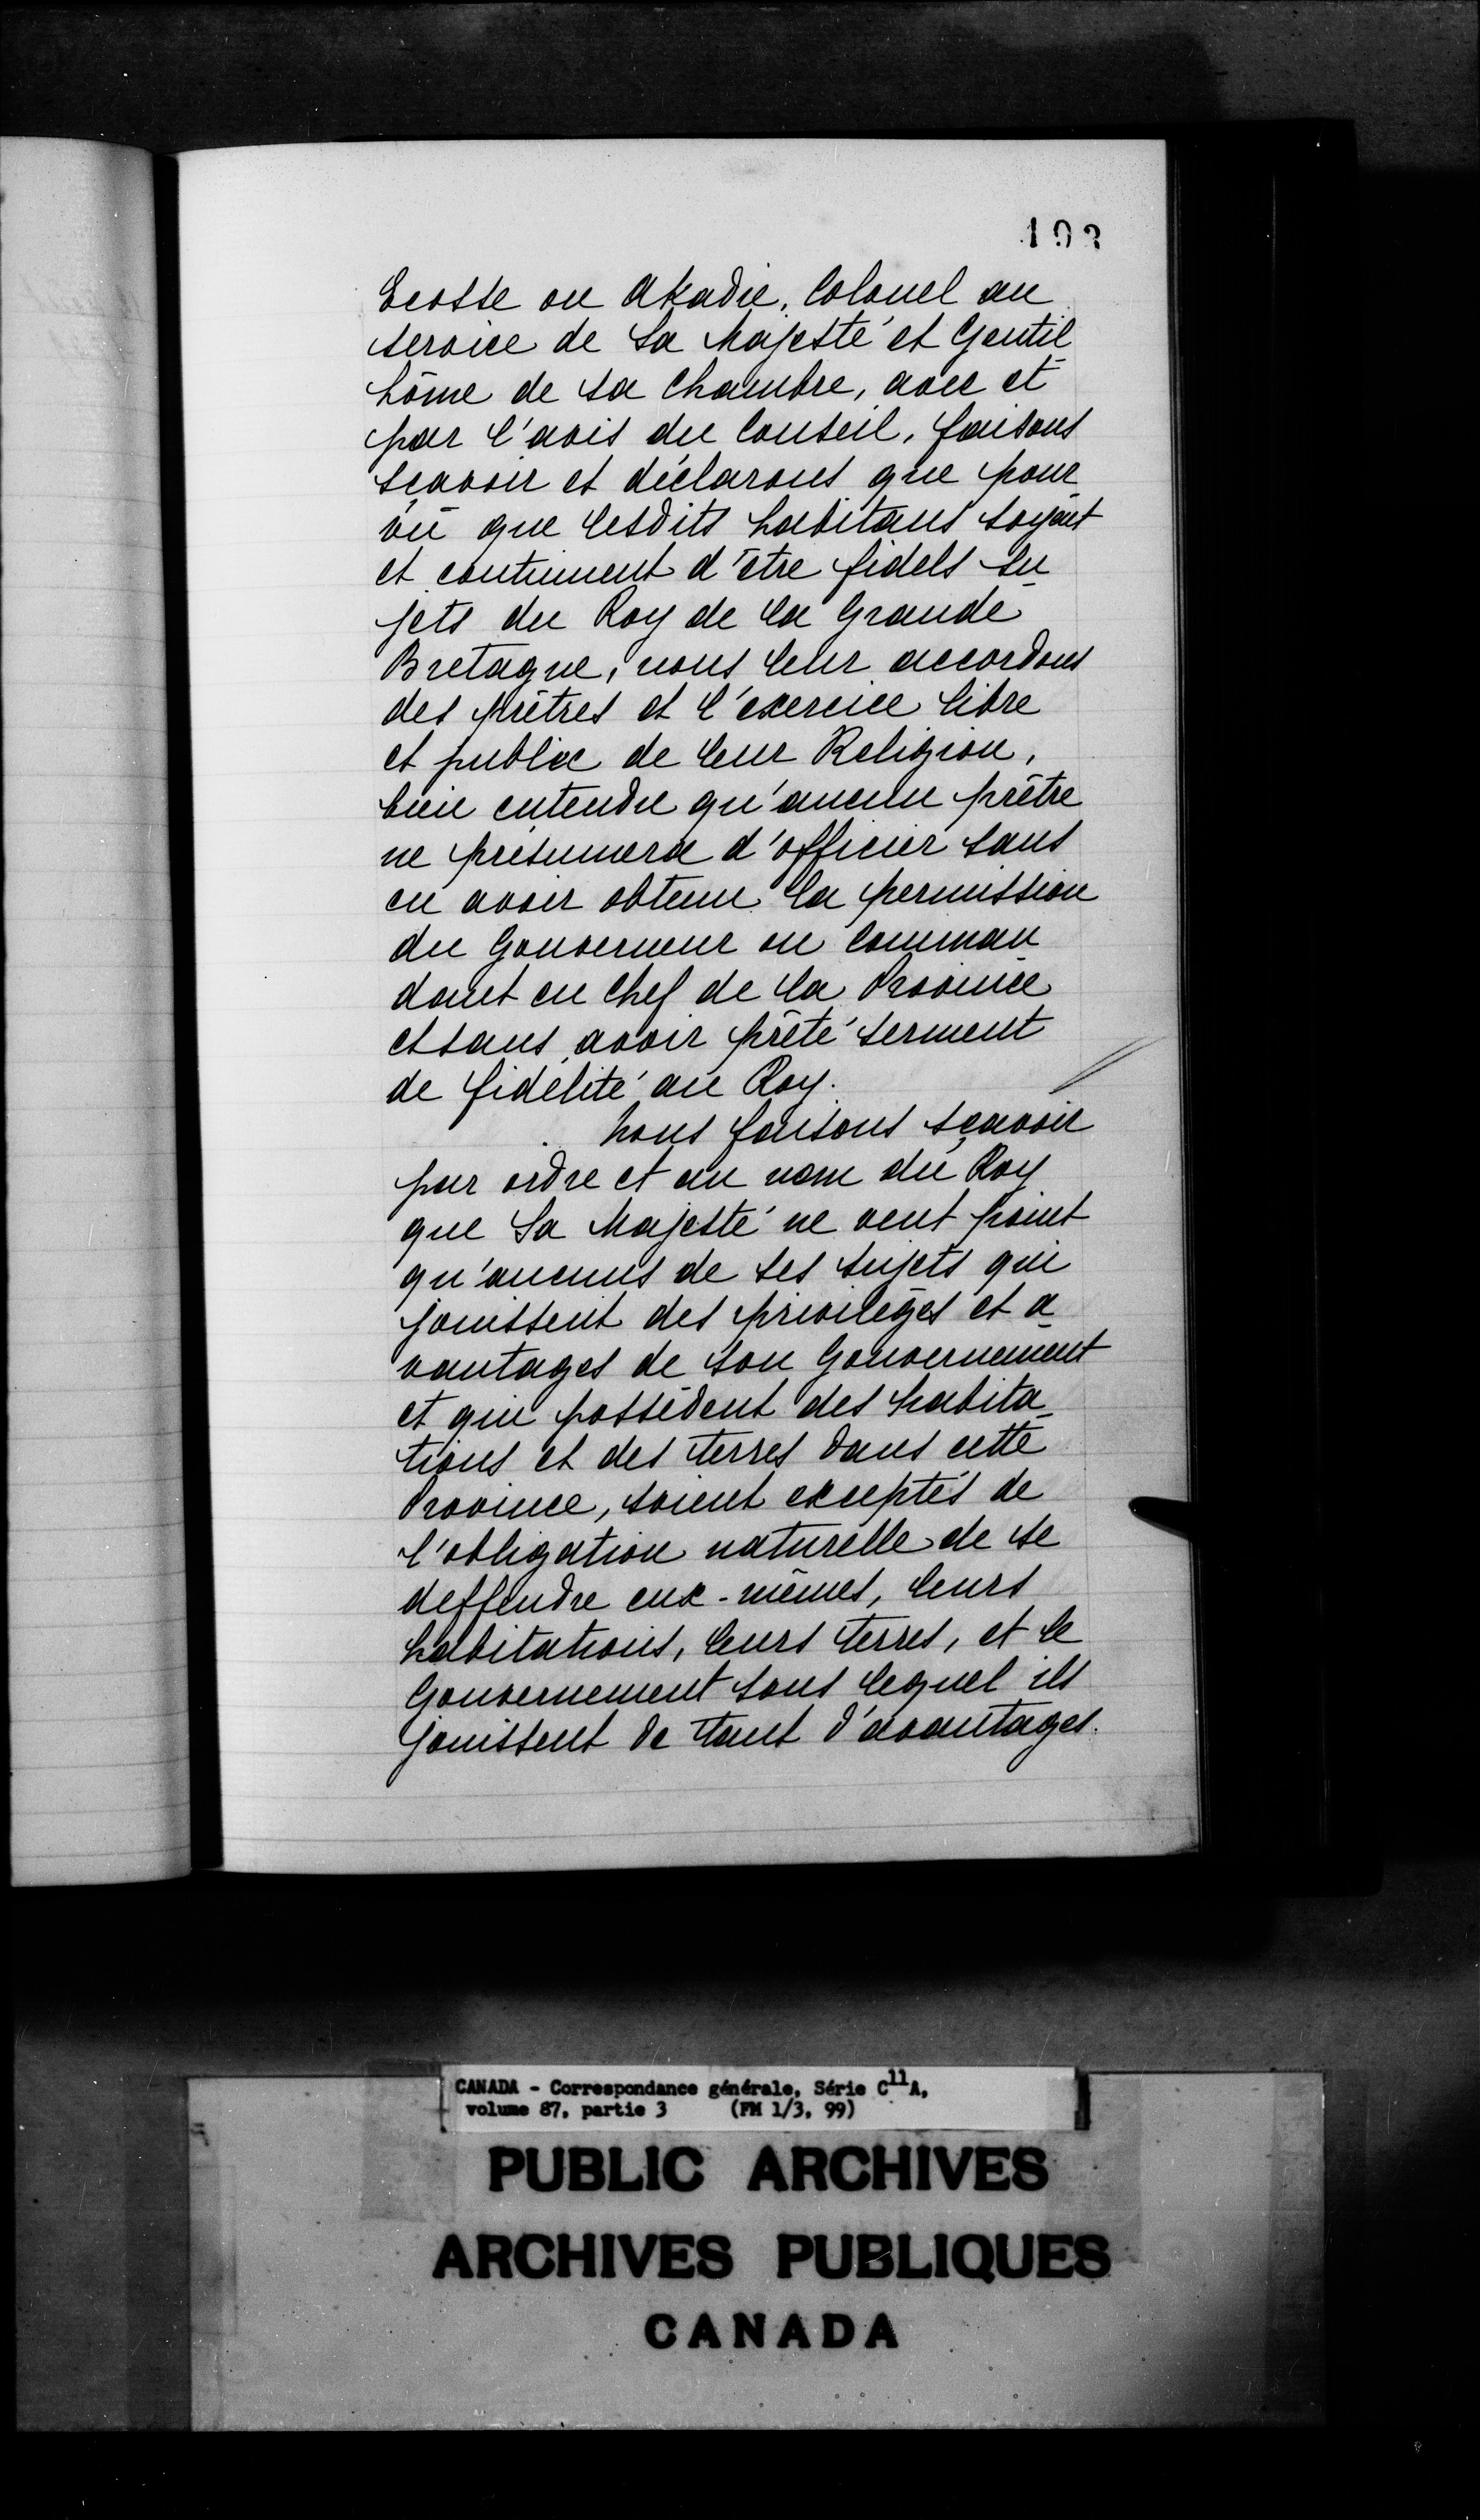 193
Ecosse ou Akadie, Colonel au
service de Sa Majesté et Gentil
hôme de sa Chambre, avec et
par l'avis du Conseil, faisons
sçavoir et déclarons que pour
vû que lesdits habitans soyent
et continuent d'être fidels su
jets du Roy de la Grande
Bretagne, nous leur accordons
des prêtres et l'exercice libre
et public de leur Religion,
bien entendu qu'aucun prêtre
ne présumera d'officier sans
en avoir obtenu la permission
du Gouverneur ou Comman
dant en Chef de la Province
et sans avoir prêté serment
de fidélité au Roy.
Nous faisons sçavoir
par ordre et au nom du Roy
que Sa Majesté ne veut point
qu'aucuns de ses sujets qui
jouissent des privilèges et a
vantages de son Gouvernement
et qui possèdent des habita
tions et des terres dans cette
Province, soient exceptés de
l'obligation naturelle de se
deffendre eux-mêmes, leurs
habitations, leurs terres, et le
Gouvernement sous lequel ils
jouissent de tant d'avantages.
CANADA - Correspondance générale, Série C11A,
volume 87, partie 3 (FM 1/3, 99)
PUBLIC ARCHIVES
ARCHIVES PUBLIQUES
CANADA